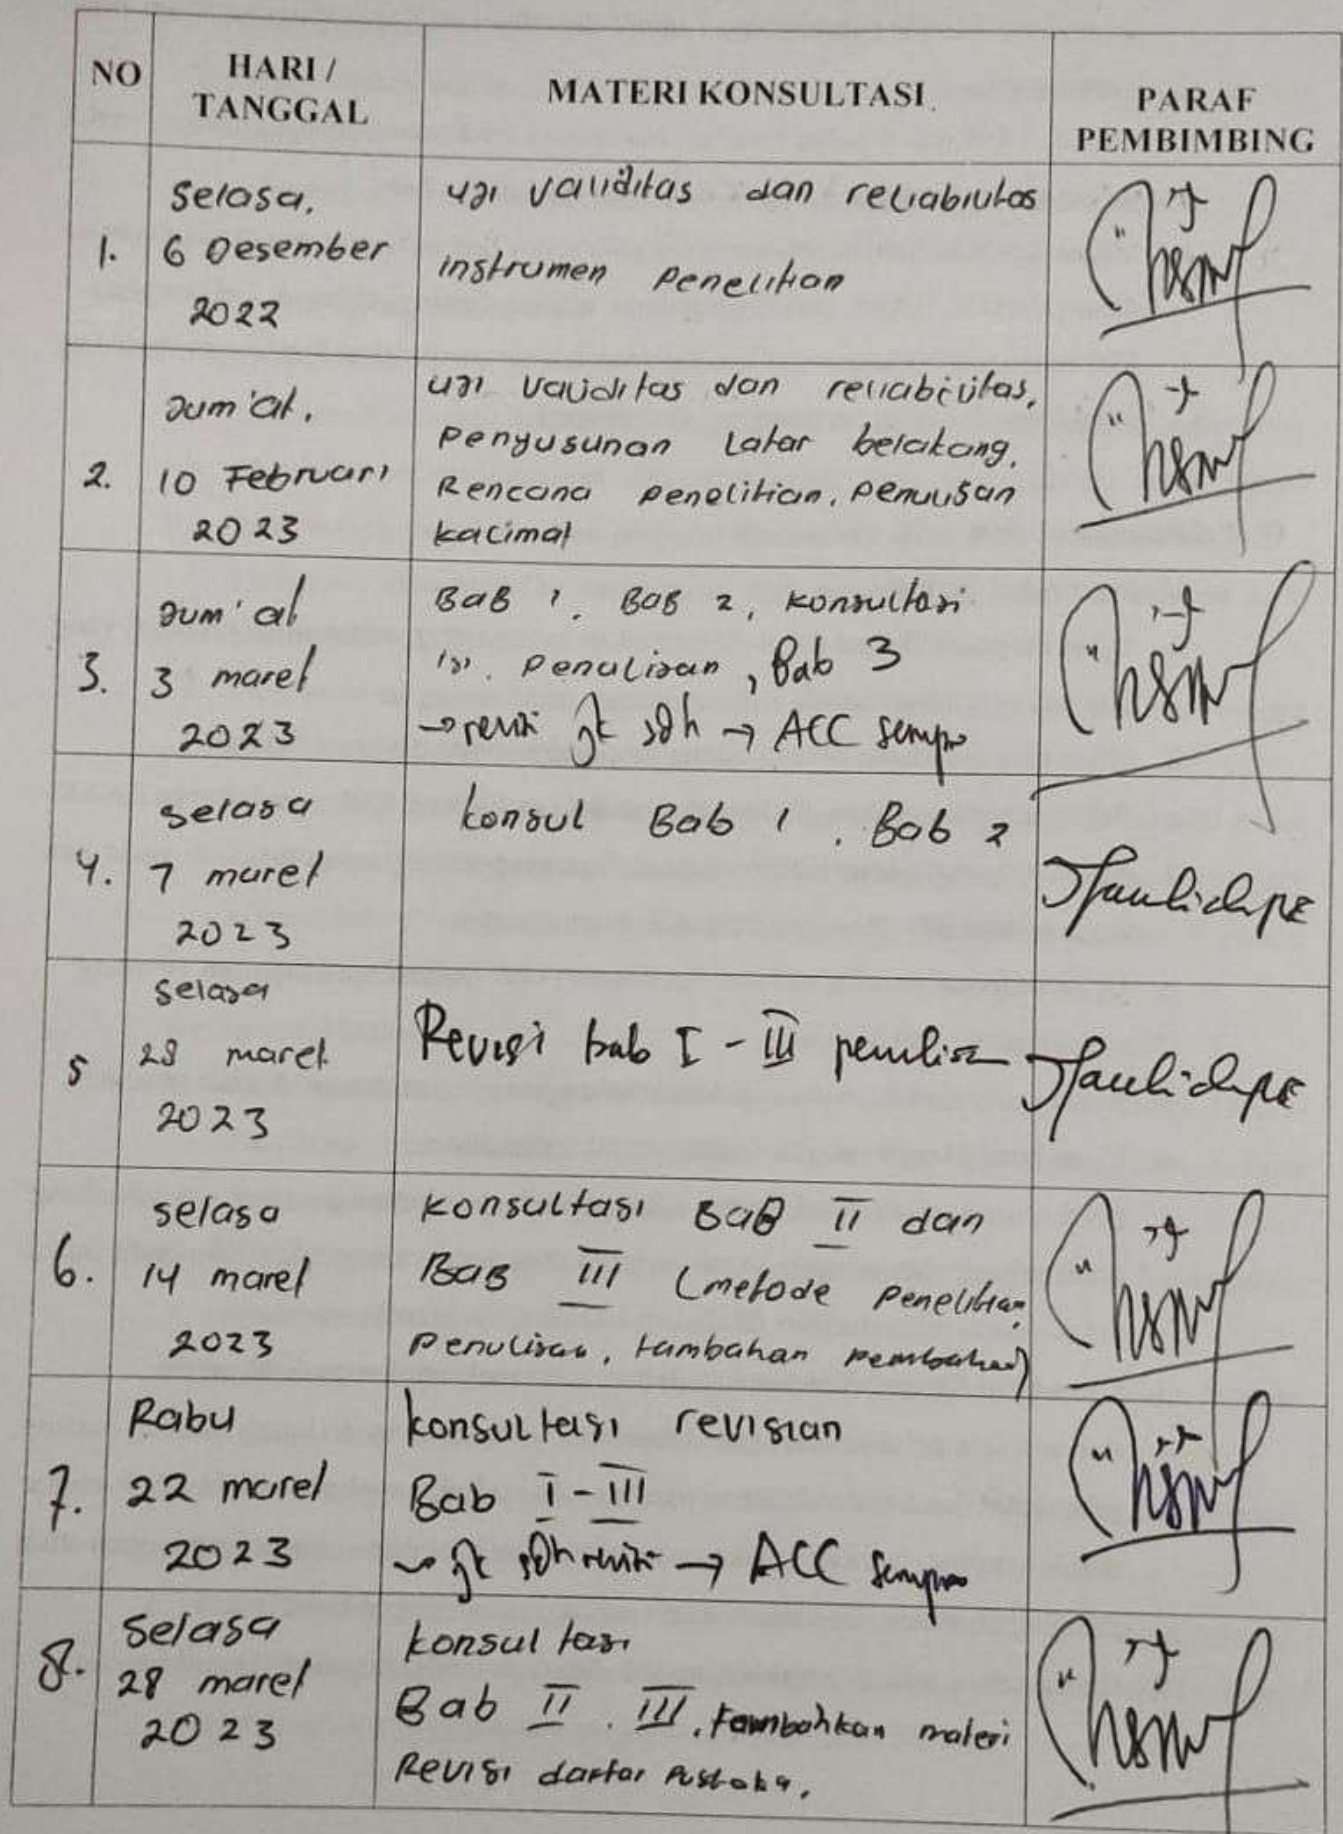 NO HARI / TANGGAL MATERI KONSULTASI PARAF PEMBIMBING
1. Selasa, 6 Desember 2022
uji validitas dan reliabilitas
instrumen penelitian
2. Jum'at, 10 Februari 2023
uji validitas dan reliabilitas,
penyusunan latar belakang,
Rencana penelitian, penulisan
kalimat
3. Jum'at 3 maret 2023
BAB 1, BAB 2, konsultasi
isi, penulisan, Bab 3
→ revisi sdh → ACC sempro
4. selasa 7 maret 2023
konsul Bab 1, Bab 2
5 selasa 28 maret 2023
Revisi bab I - III
6. selasa 14 maret 2023
konsultasi BAB II dan
BAB III (metode penelitian,
penulisan, tambahan pembahasan)
7. Rabu 22 maret 2023
konsultasi revisian
Bab I - III
sdh revisi → ACC sempro
8. selasa 28 maret 2023
konsultasi
Bab II, III, tambahkan materi
Revisi daftar pustaka,